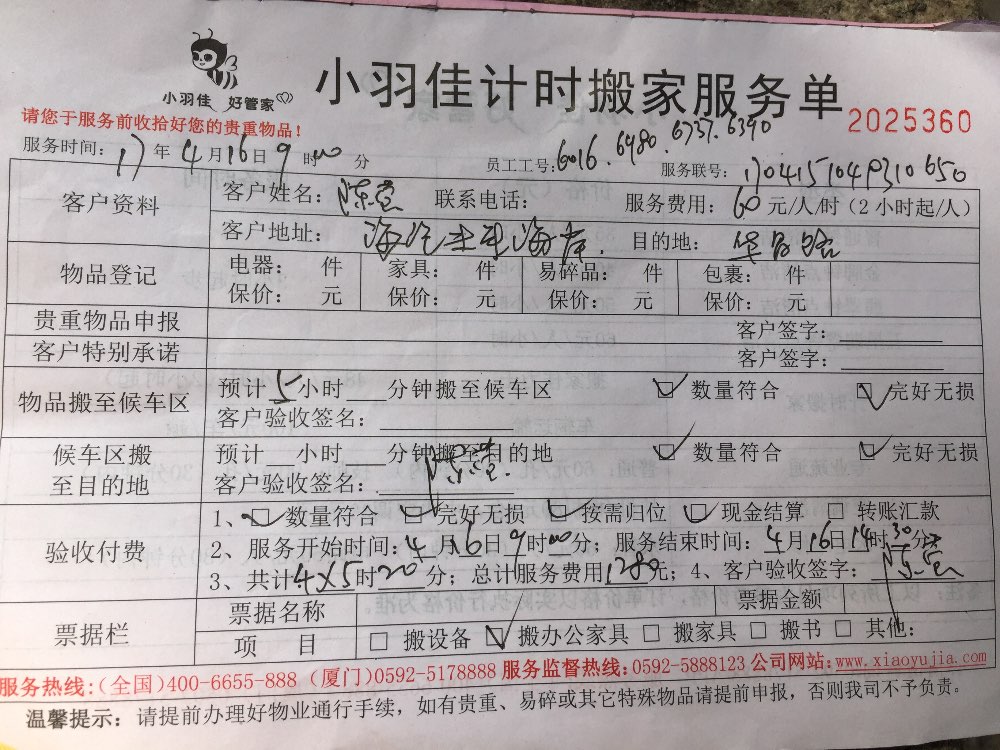 小羽佳 好管家
小羽佳计时搬家服务单
2025360
请您于服务前收拾好您的贵重物品！
服务时间：17年4月16日9时00分 员工工号：6016、6980、6737、6390 服务联号：
客户资料 客户姓名：陈 联系电话： 服务费用：60元/人/时（2小时起/人）
客户地址： 目的地：
物品登记 电器： 件 家具： 件 易碎品： 件 包裹： 件
保价： 元 保价： 元 保价： 元 保价： 元
贵重物品申报 客户签字：
客户特别承诺 客户签字：
物品搬至候车区 预计5小时 分钟搬至候车区 数量符合 完好无损
客户验收签名：
候车区搬至目的地 预计 小时 分钟搬至目的地 数量符合 完好无损
客户验收签名：
验收付费 1、数量符合 完好无损 按需归位 现金结算 转账汇款
2、服务开始时间：4月16日9时00分；服务结束时间：4月16日14时30分
3、共计4×5时20分；总计服务费用1280元；4、客户验收签字：
票据栏 票据名称 票据金额
项 目 搬设备 搬办公家具 搬家具 搬书 其他：
服务热线：(全国)400-6655-888 (厦门)0592-5178888 服务监督热线：0592-5888123 公司网站：www.xiaoyujia.com
温馨提示：请提前办理好物业通行手续，如有贵重、易碎或其它特殊物品请提前申报，否则我司不予负责。